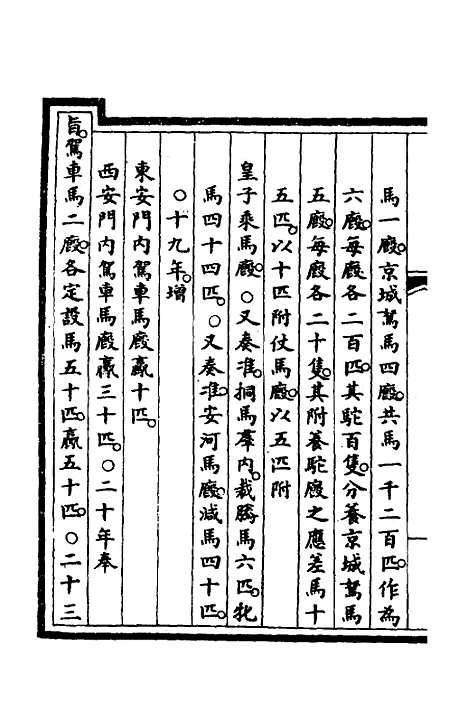 馬一廄。京城駑馬四廄。共馬一千二百匹。作為
六廄。每廄各二百匹。其駝百隻。分養京城駑馬
五廄。每廄各二十隻。其附養駝廄之應差馬十
五匹。以十匹附仗馬廄。以五匹附
皇子乘馬廄。○又奏准。挏馬羣內。裁騸馬六匹。牝
馬四十四匹。○又奏准。安河馬廄。減馬四十匹。
○十九年。增
東安門內駕車馬廄驘十匹。
西安門內駕車馬廄驘三十匹。○二十年奉
旨。駕車馬二廄。各定設馬五十匹。驘五十匹。○二十三